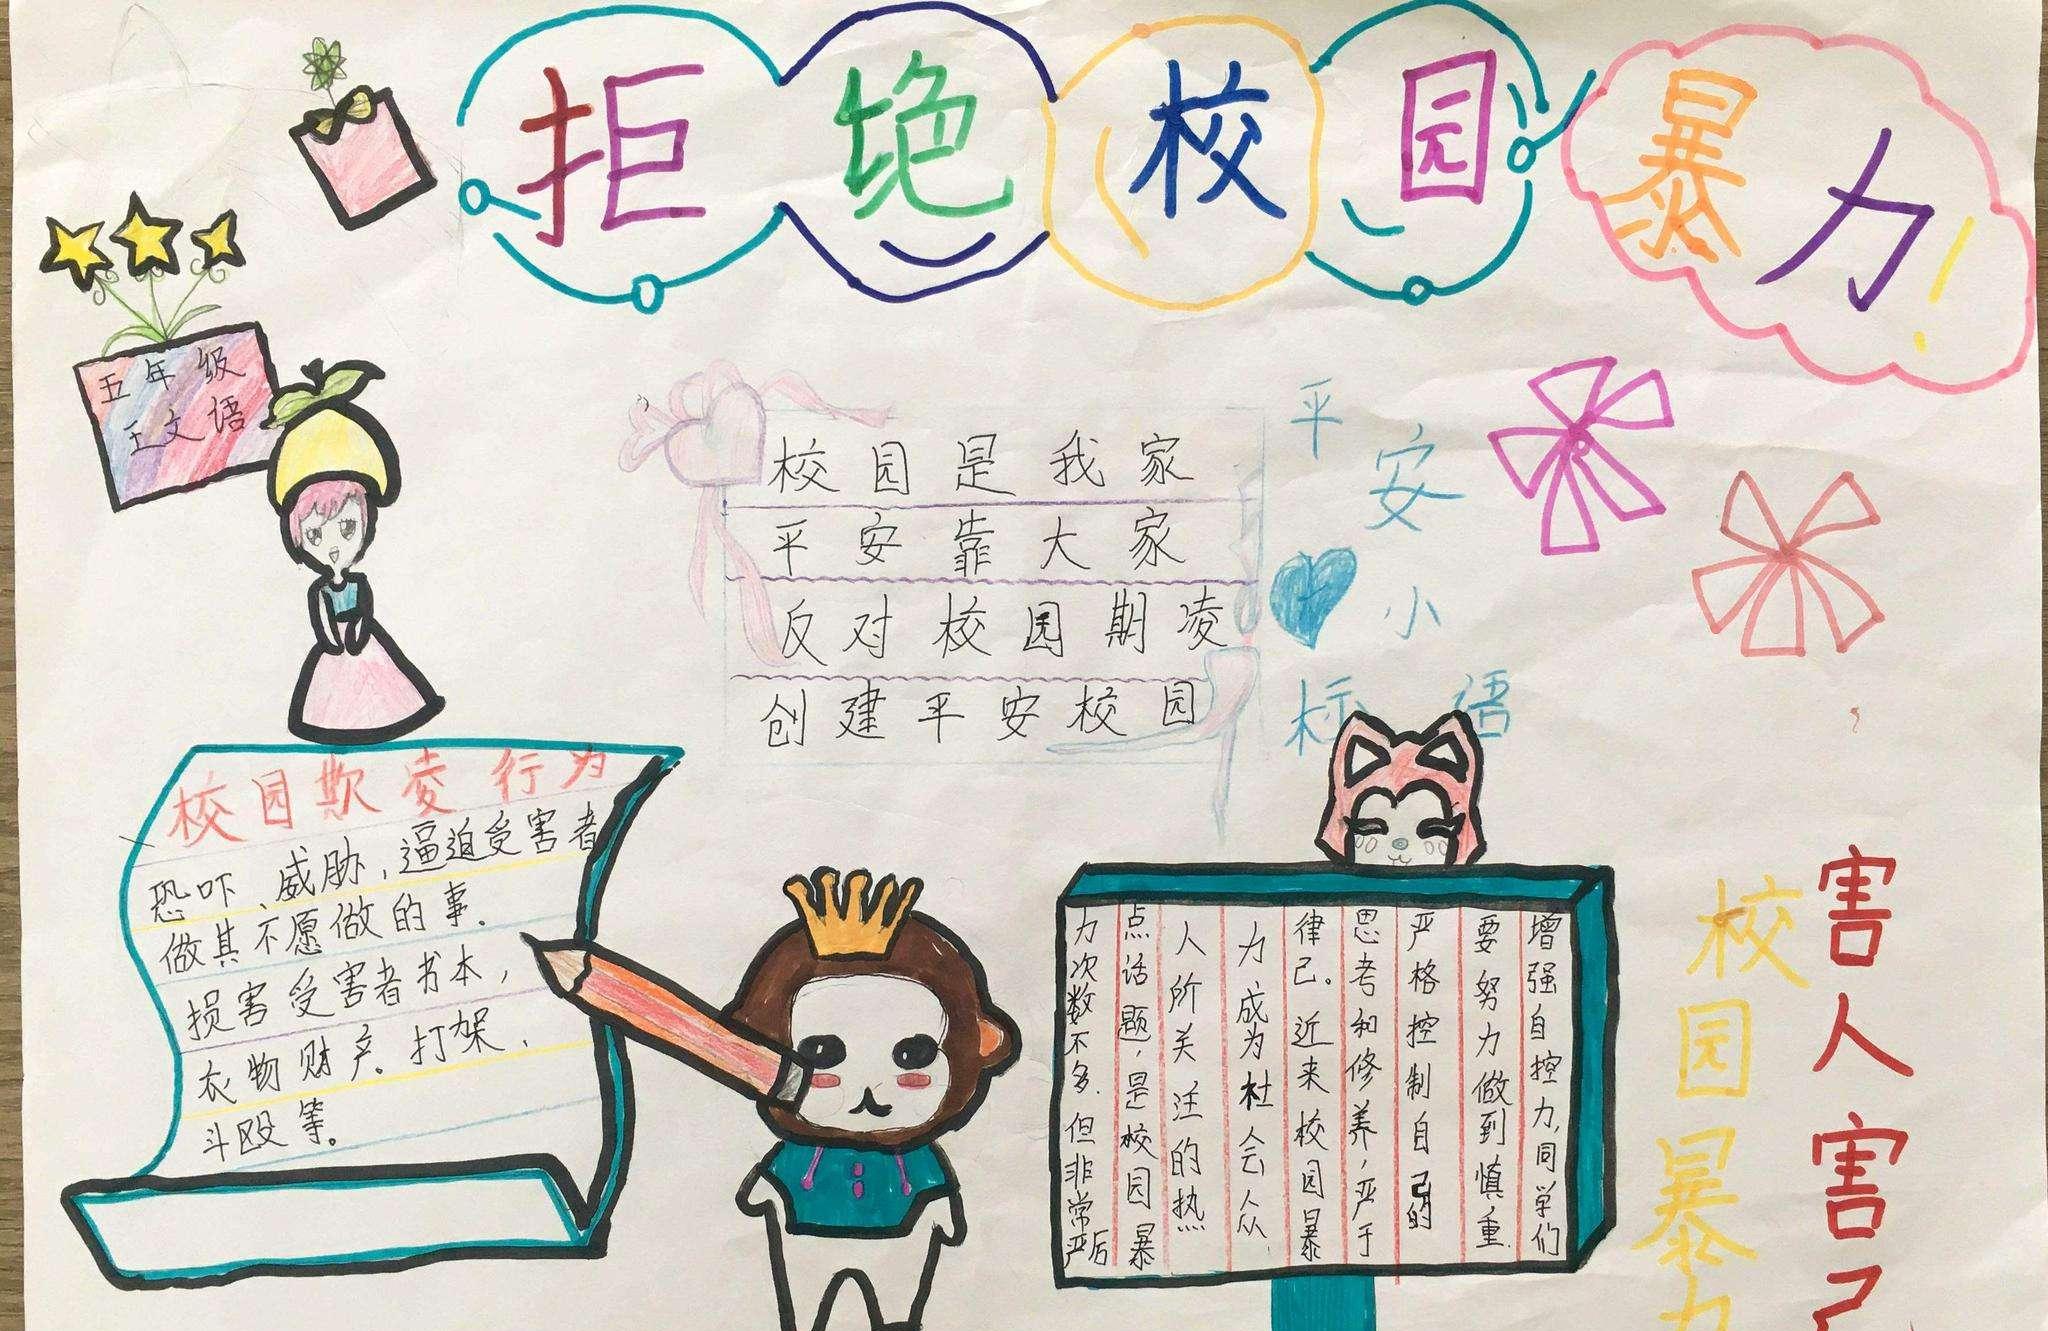 拒绝校园暴力!
五年级
王文语
校园是我家
平安靠大家
反对校园期凌
创建平安校园
平安小
标语
校园欺凌行为
恐吓、威胁,逼迫受害者
做其不愿做的事.
损害受害者书本,
衣物财产。打架、
斗殴等。
增强自控力,同学们
要努力做到慎重
严格控制自己的
思考和修养,严于
律己。近来校园暴
力成为社会众
人所关注的热
点话题,是校园暴
力次数不多.但非常严后
校园暴力
害人害己